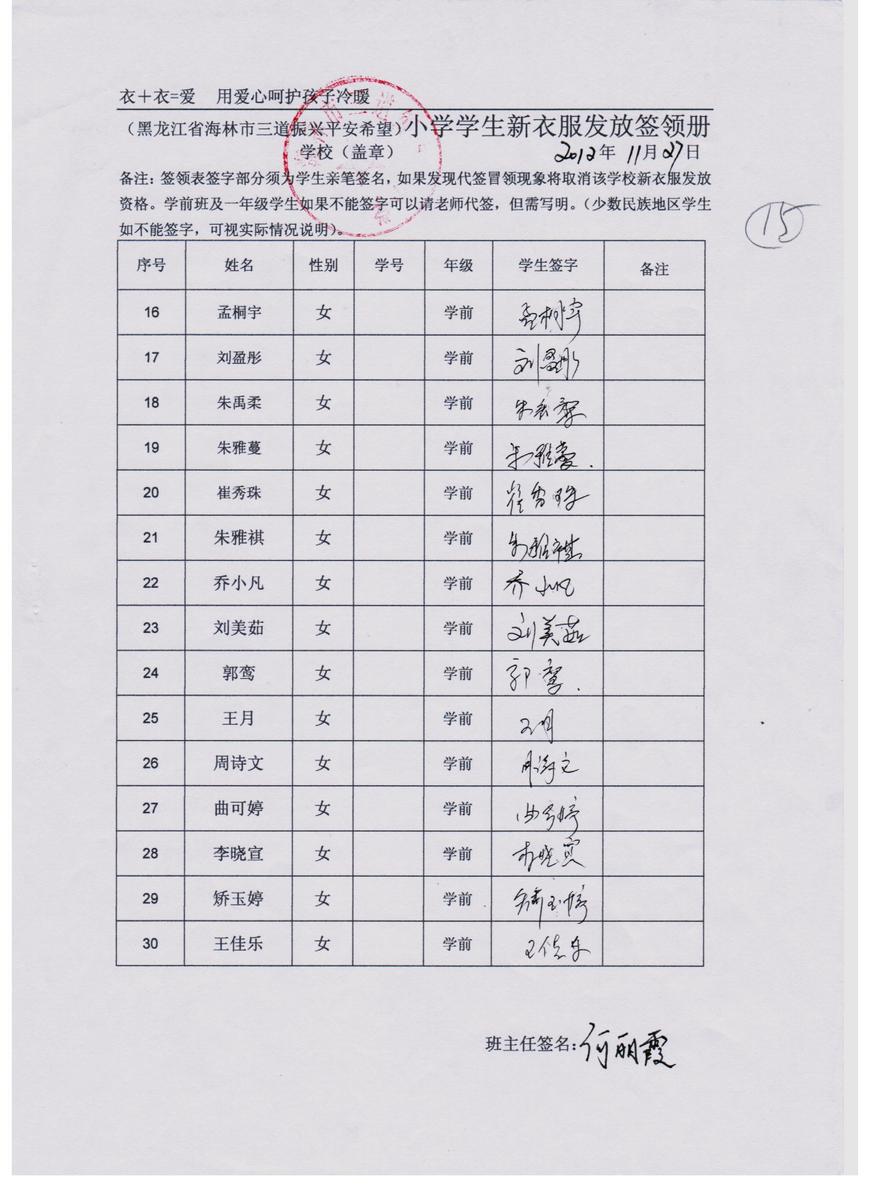 衣＋衣=爱 用爱心呵护孩子冷暖
（黑龙江省海林市三道振兴平安希望）小学学生新衣服发放签领册
学校（盖章） 2012年 11月27日
备注：签领表签字部分须为学生亲笔签名，如果发现代签冒领现象将取消该学校新衣服发放
资格。学前班及一年级学生如果不能签字可以请老师代签，但需写明。（少数民族地区学生
如不能签字，可视实际情况说明）。
15
序号 姓名 性别 学号 年级 学生签字 备注
16 孟桐宇 女 学前 孟桐宇
17 刘盈彤 女 学前 刘盈彤
18 朱禹柔 女 学前
19 朱雅蔓 女 学前 朱雅蔓.
20 崔秀珠 女 学前 崔秀珠
21 朱雅祺 女 学前 朱雅祺
22 乔小凡 女 学前 乔小凡
23 刘美茹 女 学前 刘美茹
24 郭鸾 女 学前 郭鸾.
25 王月 女 学前 王月
26 周诗文 女 学前 周诗文
27 曲可婷 女 学前 曲可婷
28 李晓宣 女 学前 李晓宣
29 矫玉婷 女 学前 矫玉婷
30 王佳乐 女 学前 王佳乐
班主任签名:何丽霞